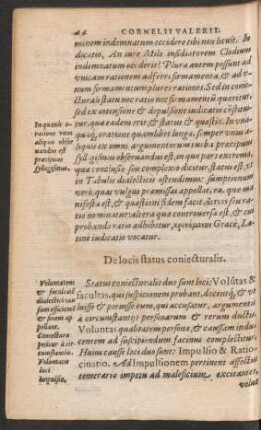 44 CORNELII VALERII.
minem indemnatum occidere tibi non licuit. In
ducatio, An iure Milo insidiatorem Clodium
indemnatum occiderit? Plura autem possunt ad
vnicam rationem adferri firmamenta, & ad v-
num firmamentum plures rationes. Sed in con-
iecturali statu nec ratio nec firmamentū quæritur,
sed ex intensione & depulsione iudicatio cōstitui-
tur, quæ eadem erit, & status, & quæstio. In vna-
quaq; oratione quamlibet longa, semper vnus
ex omni argumentorum turba præcipuus
syllogismus obseruandus est, in quo pars extrema,
quæ conclusio seu complexio dicitur, status est, vt
in Tabulis dialecticis ostendimus: sumptionum
verò, quas vulgus præmissas appellat, ea, quæ ma-
nifesta est, & quæstioni fidem facit,
nominatur altera quæ controuersa est, & cui
probandæ ratio adhibetur, Græcè, La-
tinè iudicatio vocatur.
In quauis o-
ratione vnus
aliquis obser-
uandus est
præcipuus
syllogismus.
De locis status coniecturalis.
Status coniecturalis duo sunt loci: Volūtas &
facultas, qui suspicionem probant, docentq́; & vo-
luisse & potuisse eum, qui accusatur, argumentis
à circumstantijs personarum & rerum ductis.
Voluntas qualitatem personæ, & caussam indu-
centem ad suspiciendum facinus complectitur.
Huius caussæ loci duo sunt: Impulsio & Ratio-
cinatio. Ad Impulsionem pertinent affectus
temerario impetu ad maleficium excitantes,
Voluntatem
& facultatē
dialectici cau
sam efficientē
& finem ap-
pellant.
Coniectura
petitur à cir-
cunstantijs.
Voluntatis
loci
Impulsio,
volut